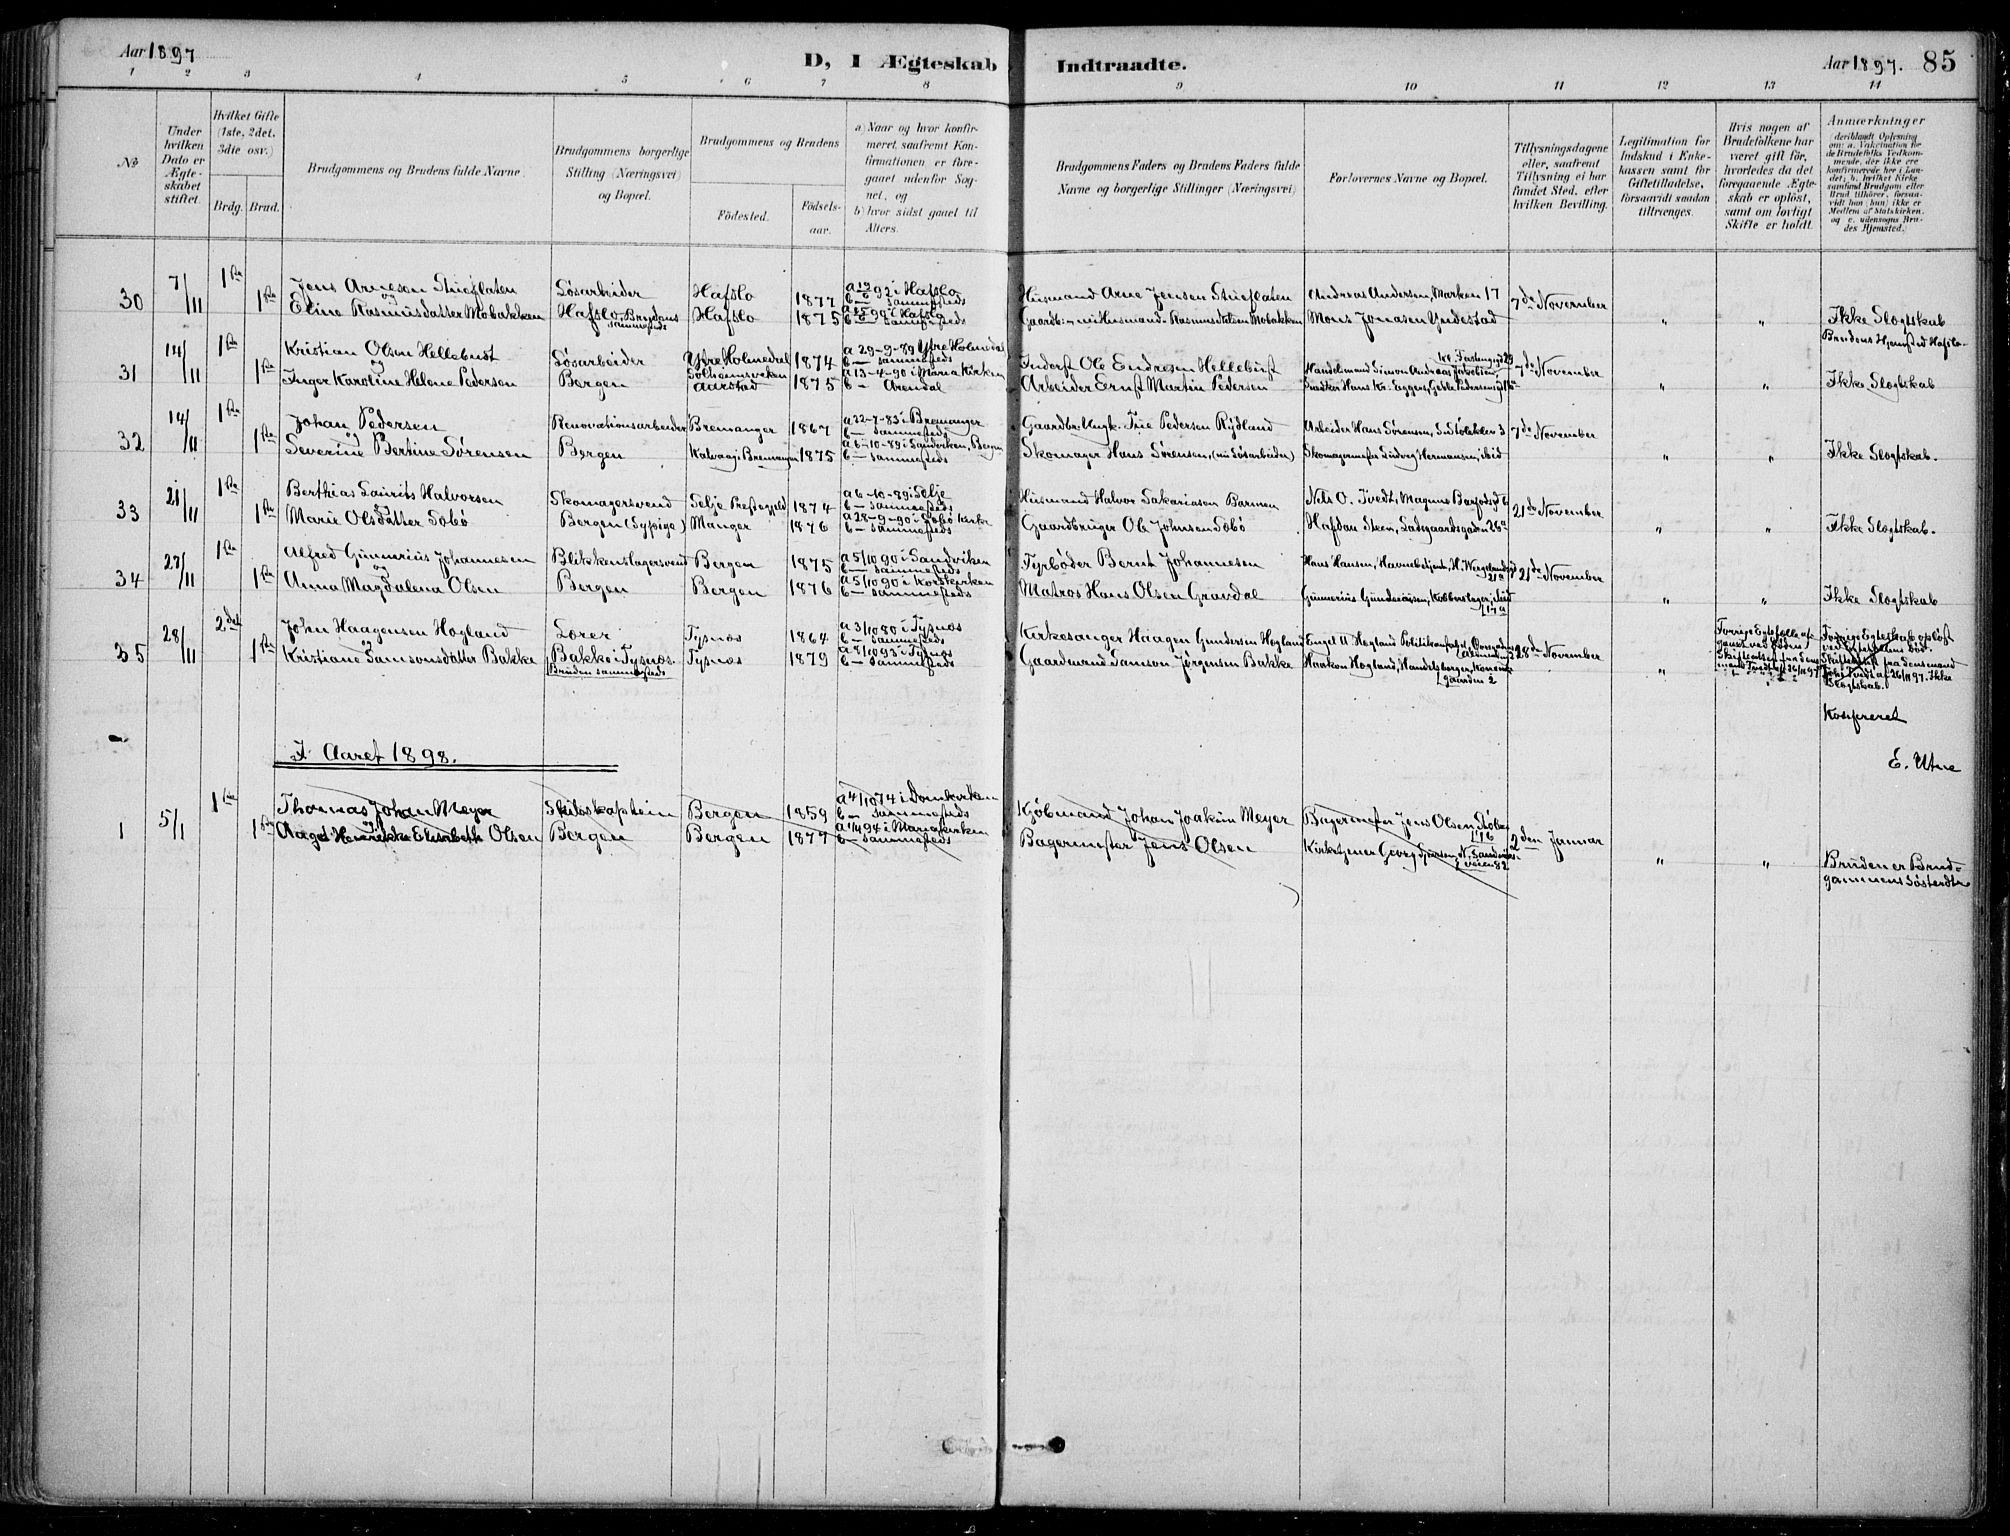 Aar 1897
D, I Ægteskab Indtraadte.
Aar 1897. 85
1 2 3 4 5 6 7 8 9 10 11 12 13 14
No
Under hvilken Dato er Ægteskabet stiftet.
Hvilket Gifte (1ste, 2det, 3die osv.)
Brdg. Brud.
Brudgommens og Brudens fulde Navne.
Brudgommens borgerlige Stilling (Næringsvei) og Bopæl.
Brudgommens og Brudens
Fødested.
Fødselsaar.
a) Naar og hvor konfirmeret, saafremt Konfirmationen er foregaaet udenfor Sognet, og
b) hvor sidst gaaet til Alters.
Brudgommens Faders og Brudens Faders fulde Navne og borgerlige Stillinger (Næringsvei)
Forlovernes Navne og Bopæl.
Tillysningsdagene eller, saafremt Tillysning ei har fundet Sted, efter hvilken Bevilling.
Legitimation for Indskud i Enkekassen samt for Giftetilladelse, forsaavidt saadan tiltrænges.
Hvis nogen af Brudefolkene har været gift før, hvorledes da det foregaaende Ægteskab er opløst, samt om lovligt Skifte er holdt.
Anmærkninger
(deriblandt Oplysning om: a. Vakcination for de Brudefolks Vedkommende, der ikke ere konfirmerede her i Landet; b. hvilket Kirkesamfund Brudgom eller Brud tilhører, forsaavidt han (hun) ikke er Medlem af Statskirken, og c. udensogns Brudes Hjemsted.)
30 7/11 1ste Jens Arneson Løsarbeider Hafslo 1877 i Hafslo Husmand Arne Jensen Andreas Andersen, Marken 17 7de November
og
1ste Eline Rasmusdatter Mobakken Hafslo, Brudens sammesteds Hafslo 1875 i Hafslo b — sammesteds Rasmus Mobakken Mons Jonasen Yndestad " " Ikke Slegtskab
Brudens Hjemsted Hafslo
31 14/11 1ste Kristian Olsen Hellebust Løsarbeider Ytre Holmedal 1874 a 29-9-89 Ytre Holmedal b — sammesteds Inderst Ole Endresen Hellebust Handelsmand Simon Andreas 7de November
og
1ste Inger Karoline Helene Pedersen Bergen Solheimsviken Aarstad 1875 a 13-4-90 i Maria Kirken b — Arendal Arbeider Ernst Martin Pedersen " " Ikke Slegtskab
32 14/11 1ste Johan Pedersen Renovationsarbeider Bremanger 1867 a 22-7-83 i Bremanger b — sammesteds Gaardbr. Pedersen Rylland Arbeider Hans Sørensen, 3 7de November
og
1ste Severine Bertine Sørensen Bergen Kalvaag i Bremanger 1875 a 6-10-89 i Sandviken, Bergen b — sammesteds Skomager Hans Sørensen, (nu Løsarbeider) Skomagermester Ludvig Hermansen, ibid " " Ikke Slegtskab.
33 21/11 1ste Berthias Laurits Halvorsen Skomagersvend Selje Prestegjeld 1874 a 6-10-89 i Selje b — sammesteds Husmand Halvor Sakariasen Barmen Nils O. Tvedt, Magnus Barfodsg 6 21de November
og
1ste Marie Olsdatter Sobø Bergen (Sypige) Manger 1876 a 28-9-90 i Sobø Kirke b — sammesteds Gaardbruger Ole Johnsen Sobø Halfdan Steen, Ladegaardsgaden 26a " " Ikke Slegtskab.
34 27/11 1ste Alfred Gunnerius Johannesen Blikkenslagersvend Bergen 1875 a 5/10 90 i Sandviken b — sammesteds Fyrbøder Bernt Johannesen Hans Hansen, Havnebetjent, H. Wergelands 21a 21de November
og
1ste Anna Magdalena Olsen Bergen Bergen 1876 a 5/10 90 i Korskirken b — sammesteds Matros Hans Olsen Gravdal Gunnerius Gundersen, Kobberslager, 17a " " Ikke Slegtskab
35 28/11 2det John Haagensen Hogland Lærer Tysnæs 1864 a 3/10 80 i Tysnæs b — sammesteds Kirkesanger Haagen Gundersen Hogland Engel H Hogland Politikonstabel, 28de November
og
1ste Kristiane Samsonsdatter Bakke Bakke i Tysnæs. Bruden sammesteds Tysnæs 1879 a 8/10 93 i Tysnæs b — sammesteds Gaardmand Samson Jørgensen Bakke Haakon Hogland, Handelsborger, gaarden 2 "
Forrige Egteskab opløst ved Døden. Skifteattest fra Lensmand Tvedt af 26/11 97. Ikke Slegtskab.
Konfereret
E. Utne
I Aaret 1898.
1 5/1 1ste Thomas Johan Meyer Skibskaptein Bergen 1859 a 4/10 74 i Domkirken b — sammesteds Kjøbmand Johan Joakim Meyer Bagermester Jens Olsen 16 2den Januar
og
1ste Aagot Henrikke Elisabeth Olsen Bergen Bergen 1877 i Mariakirken b — sammesteds Bagermester Jens Olsen Kirketjener Georg N. Sandviksveien 82 " " Bruden er Brudgommens Søsterdtr